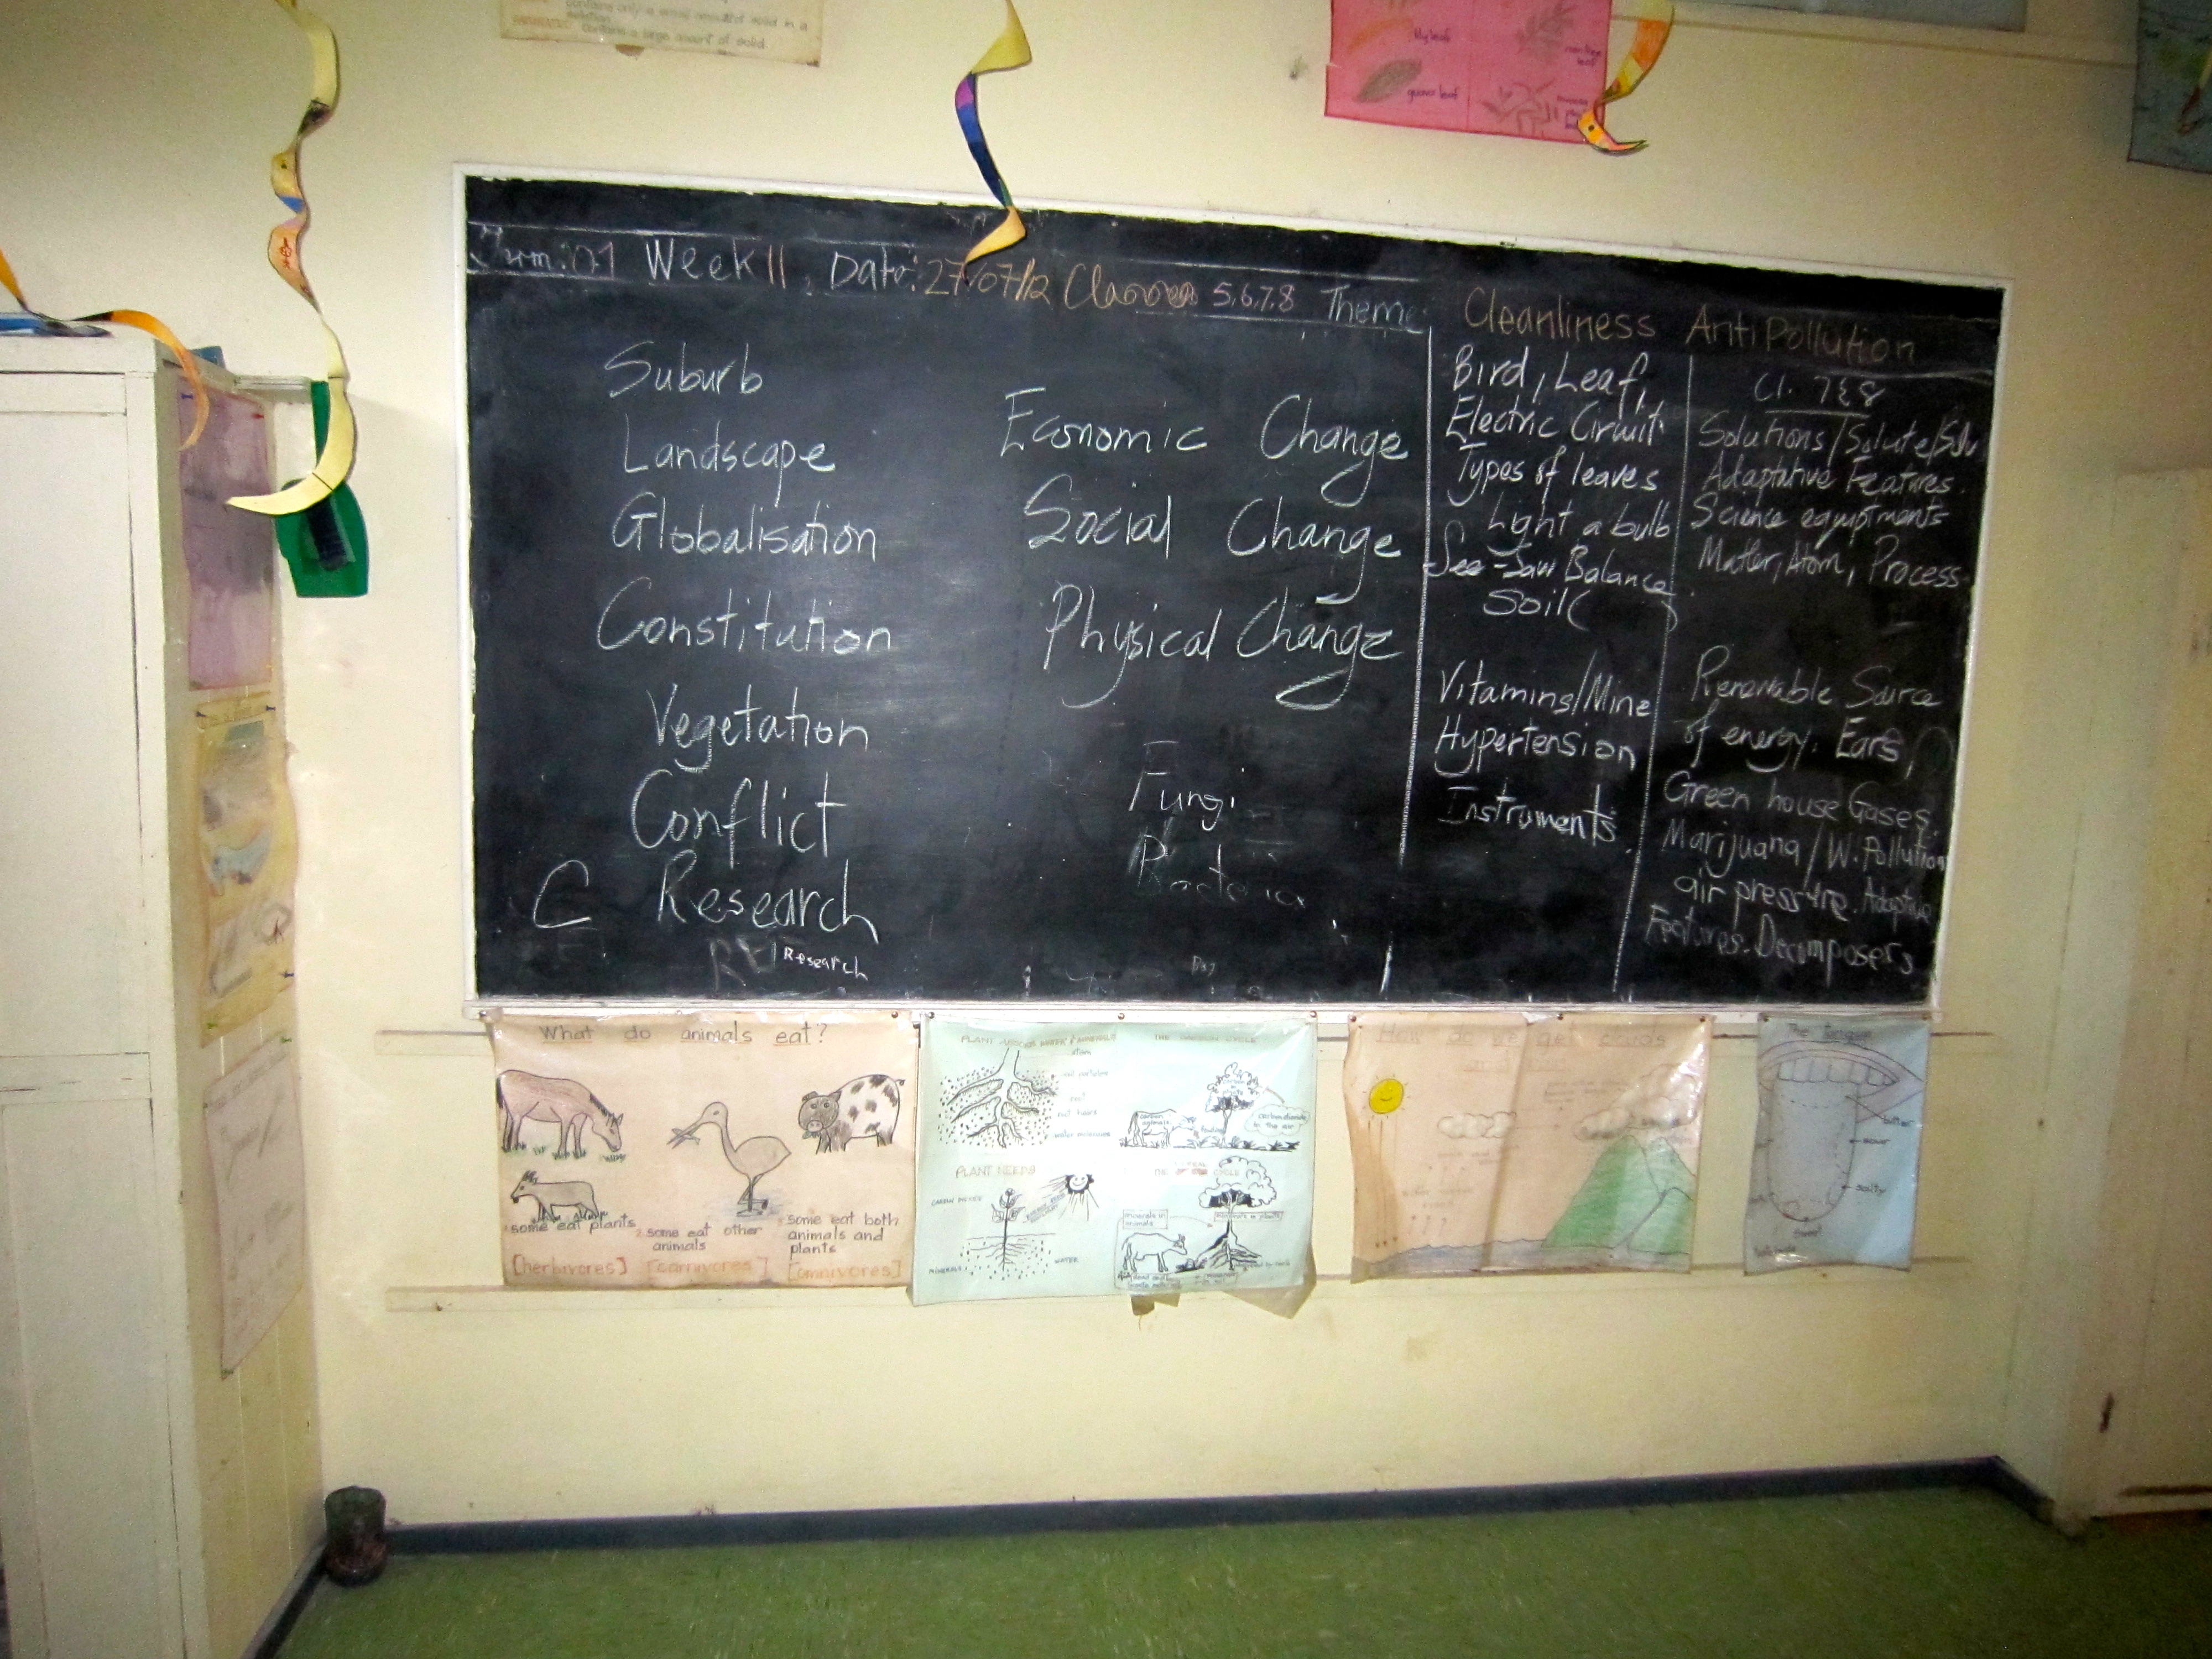 contains only a small amount of solid in a
solution
contains a large amount of solid.
guava leaf
Week 11 Date: 27/07/12 Classes 5,6,7,8 Theme: Cleanliness Anti Pollution
Suburb
Landscape
Globalisation
Constitution
Vegetation
Conflict
C Research
RE Research
Economic Change
Social Change
Physical Change
Fungi
Bacteria
Bird, Leaf,
Electric Ciruit
Types of leaves
Light a bulb
See-Saw Balance
Soil ( )
Vitamins/Mine
Hypertension
Instruments.
Cl. 7&8
Solutions/Solute/Solv
Adaptative Features.
Science equiptments
Matter, Atom, Process
Renewable Source
of energy. Ears,
Green house Gases.
Marijuana/W. Pollution
air pressure. Adaptive
Features. Decomposers
What do animals eat?
some eat plants
some eat other
animals
some eat both
animals and
plants
[herbivores] [carnivores] [omnivores]
PLANT ABSORB WATER & MINERALS
soil particles
root
root hairs
PLANT NEEDS
CARBON DIOXIDE
MINERALS
WATER
THE CARBON CYCLE
carbon dioxide
in the air
THE CYCLE
minerals in
animals
minerals in plants
How do we get clouds
The Tongue
bitter
sour
salty
sweet